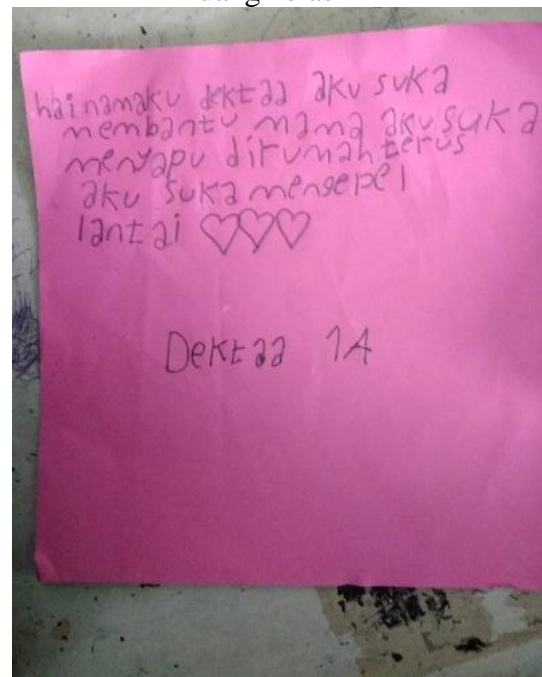 hai namaku dektaa aku suka
membantu mama aku suka
menyapu dirumah terus
aku suka mengepel
lantai ♡♡♡
Dektaa 1A